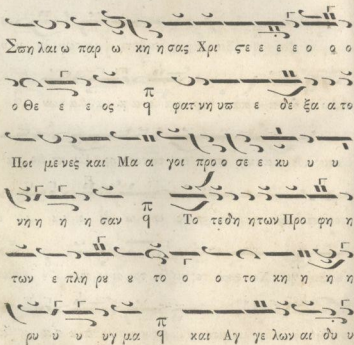 Σπη λαι ω παρ ω κη η σας Χρι ϛε ε ε ε ο ο ο
ο Θε ε ε ος π q φατ νη υπ ε δε ξα α το
Ποι με νες και Μα α γοι προ ο σε ε κυ υ υ
νη η η η σαν π q Το τε δη η των Προ φη η
των ε πλη ρȣ ȣ το ο ο το κη η η η
ρυ υ υ υγ μα π q και Αγ γε λων αι δυ υ